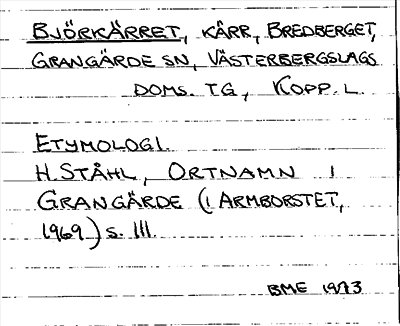 BJÖRKÄRRET, KÄRR, BREDBERGET,
GRANGÄRDE SN, VÄSTERBERGSLAGS
DOMS. TG, KOPP. L.
ETYMOLOGI.
H. STÅHL, ORTNAMN I
GRANGÄRDE (I ARMBORSTET,
1969) s. 111.
BME 1973